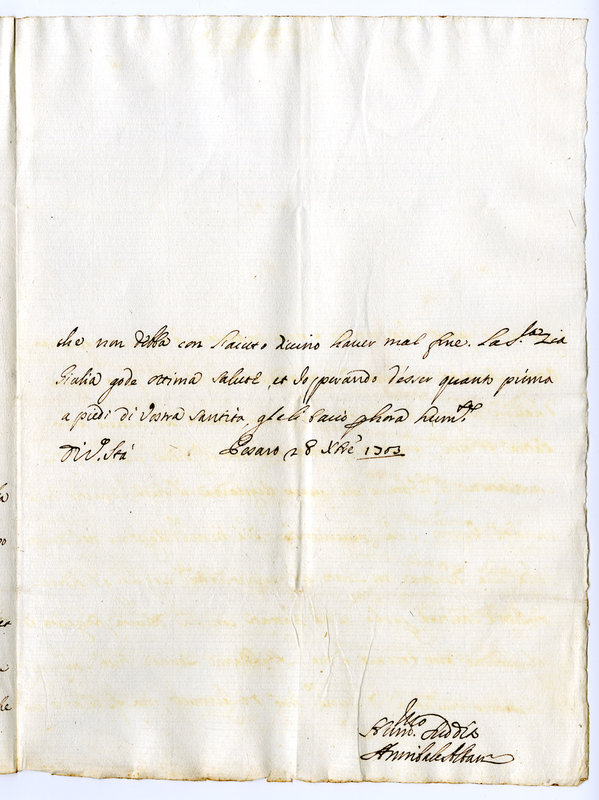 che non debba con l'aiuto divino haver mal fine. La S.ra Zia
Giulia gode ottima salute, et Io sperando d'esser quanto prima
a piedi di Vostra Santità, gle li bacio p hora humil.te
Di V.ra Stà Pesaro 28 Xbre 1703
Hum.mo Suddito
Annibale Alban